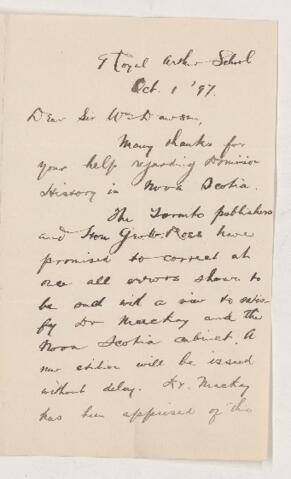 Royal Arthur School
Oct. 1 '97.
Dear Sir Wm Dawson,
Many thanks for
your help regarding Dominion
History in Nova Scotia.
The Toronto publishers
and Hon Geo. W. Ross have
promised to correct at
once all errors shown to
be such with a view to satis-
fy Dr Mackay and the
Nova Scotia cabinet. A
new edition will be issued
without delay. Dr. Mackay
has been apprised of this